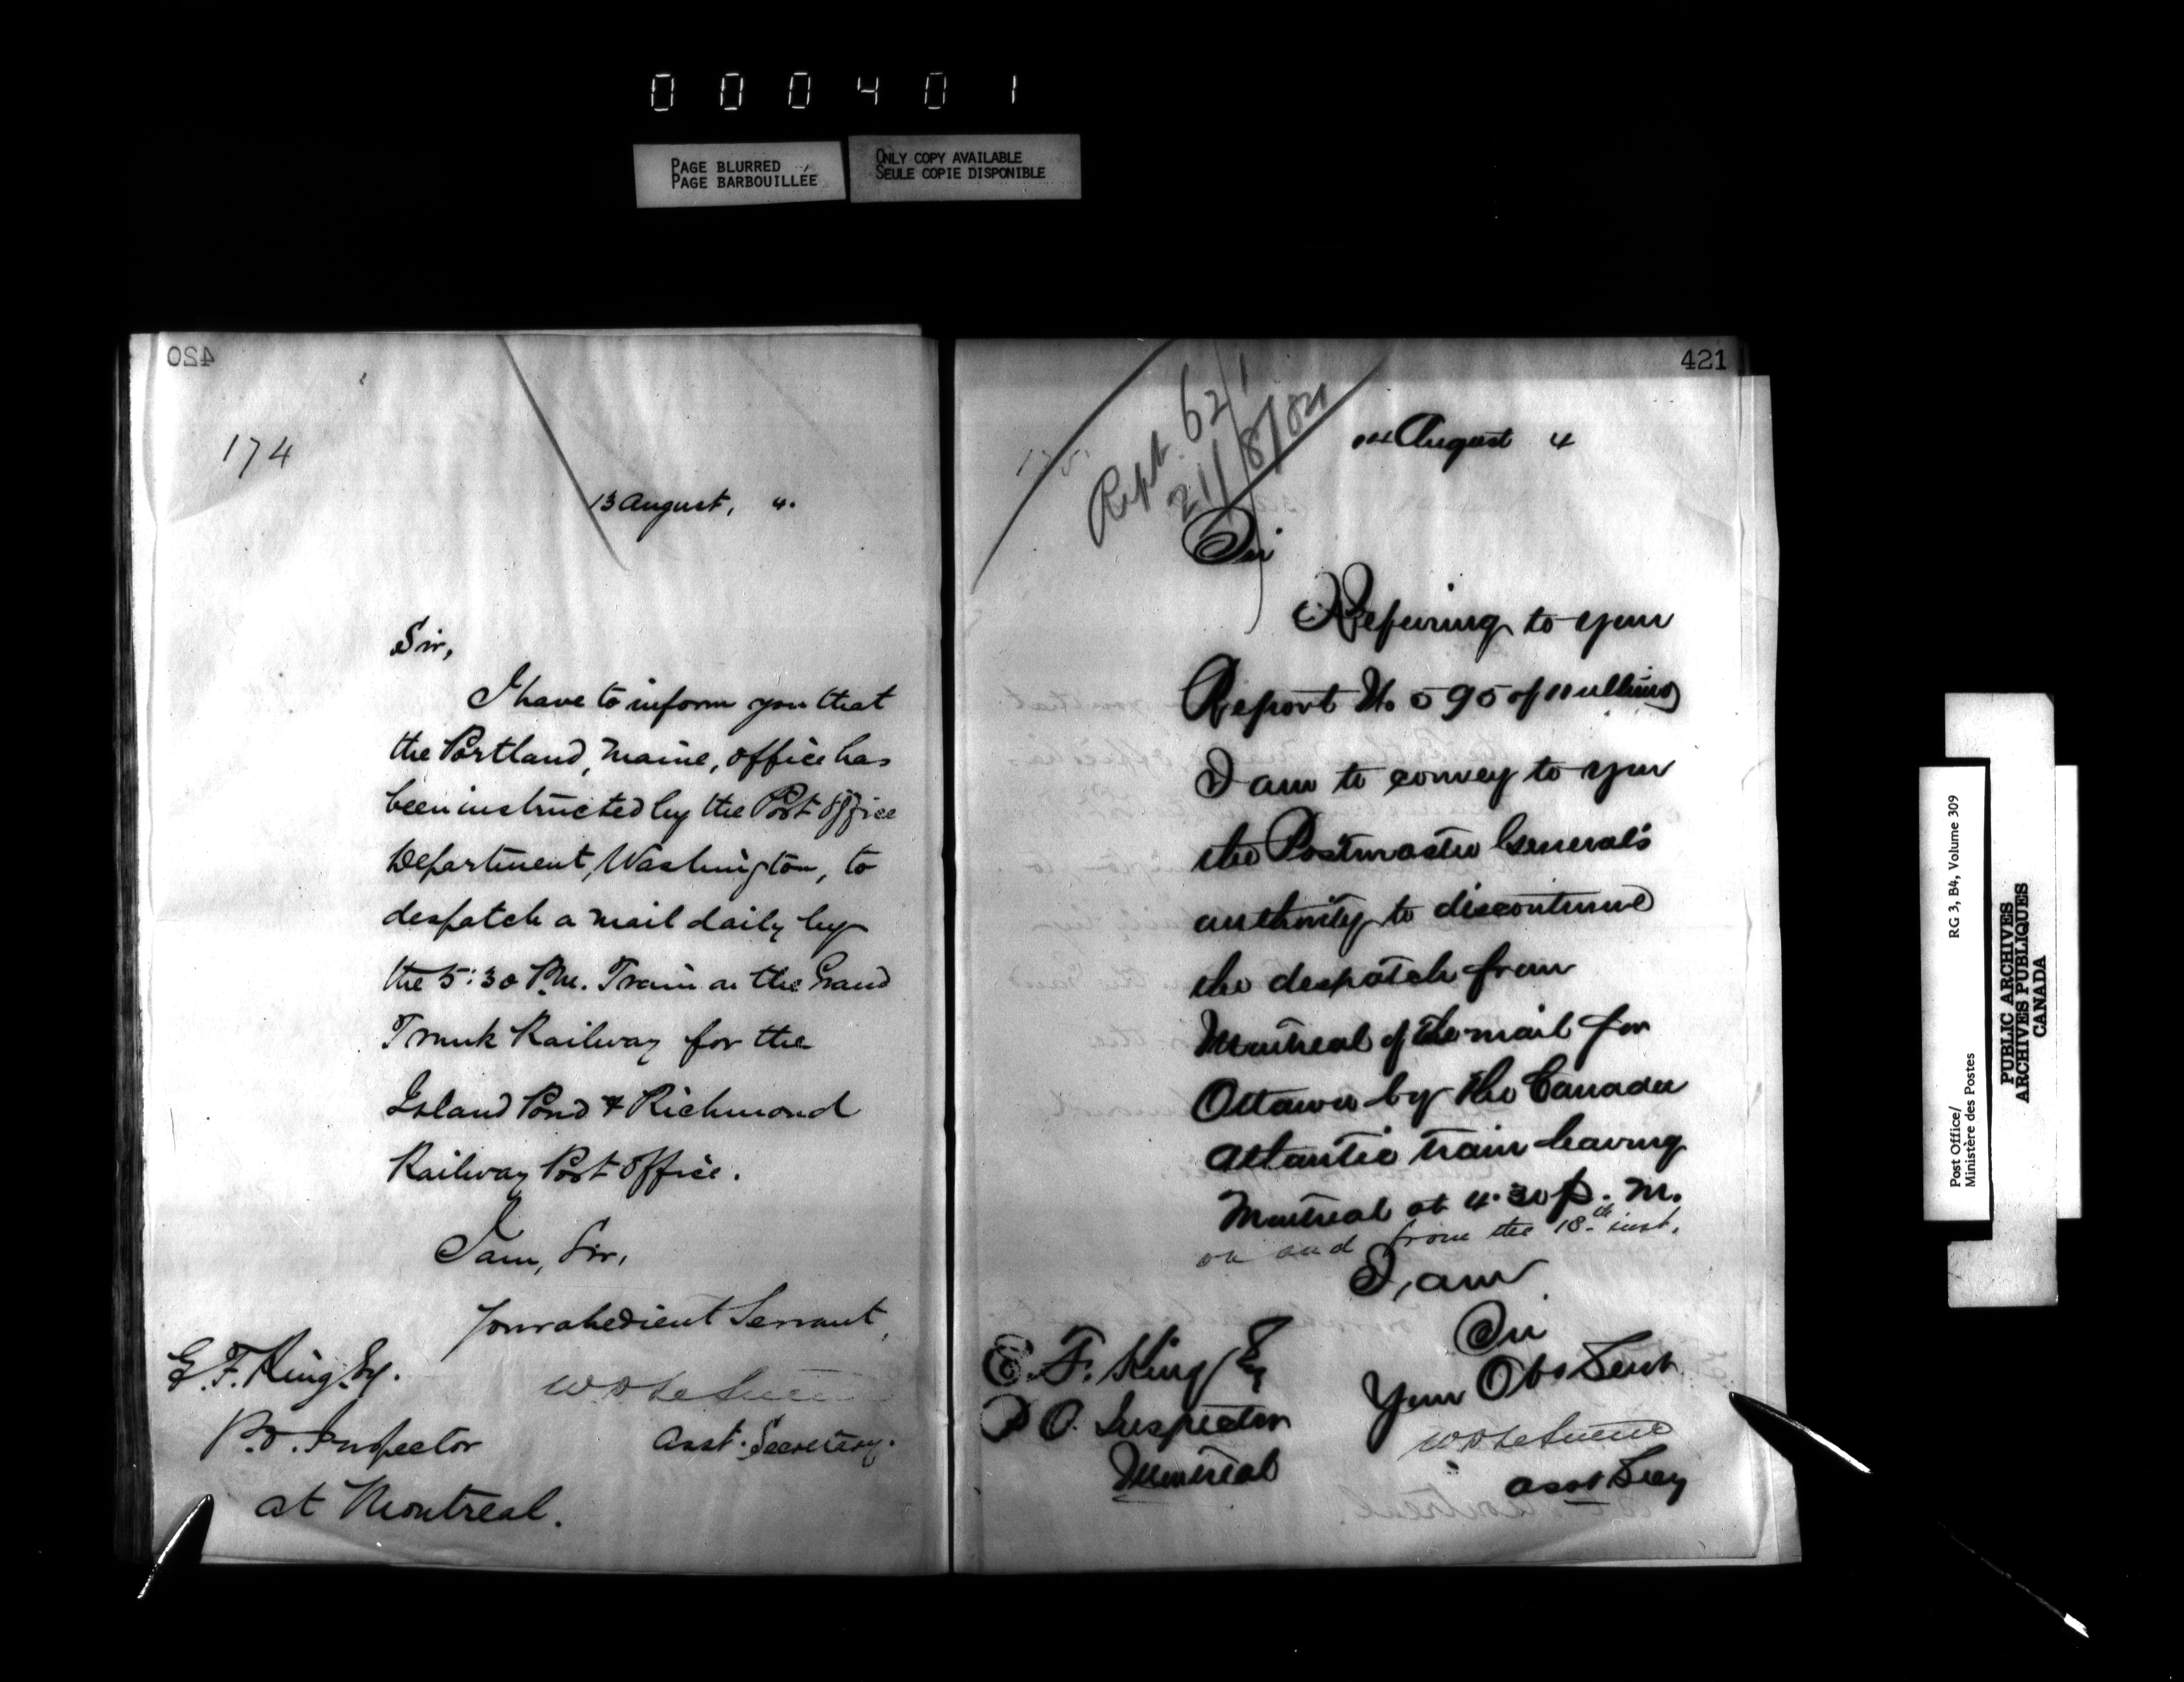 000401
PAGE BLURRED
PAGE BARBOUILLÉE
ONLY COPY AVAILABLE
SEULE COPIE DISPONIBLE
420
174
13 August, 4.
Sir,
I have to inform you that
the Portland, Maine, office has
been instructed by the Post Office
Department, Washington, to
despatch a mail daily by
the 5:30 P.M. Train on the Grand
Trunk Railway for the
Island Pond & Richmond
Railway Post Office.
I am, Sir,
Your obedient Servant,
E. F. King, Esq.
P.O. Inspector
Asst. Secretary.
at Montreal.
421
Rept. 621
21/8/84
August 4
Sir
Refering to your
Report No 595 of
I am to convey to you
the Postmaster General's
authority to discontinue
the despatch from
Montreal of the mail for
Ottawa by the Canada
Atlantic train leaving
Montreal at 4.30 p.m.
on and from the 18th inst.
I am
Sir
Your Obt Servt
E. F. King Esq
P O. Inspector
Montreal
Asst Secy
Post Office/
Ministère des Postes
RG 3, B4, Volume 309
PUBLIC ARCHIVES
ARCHIVES PUBLIQUES
CANADA